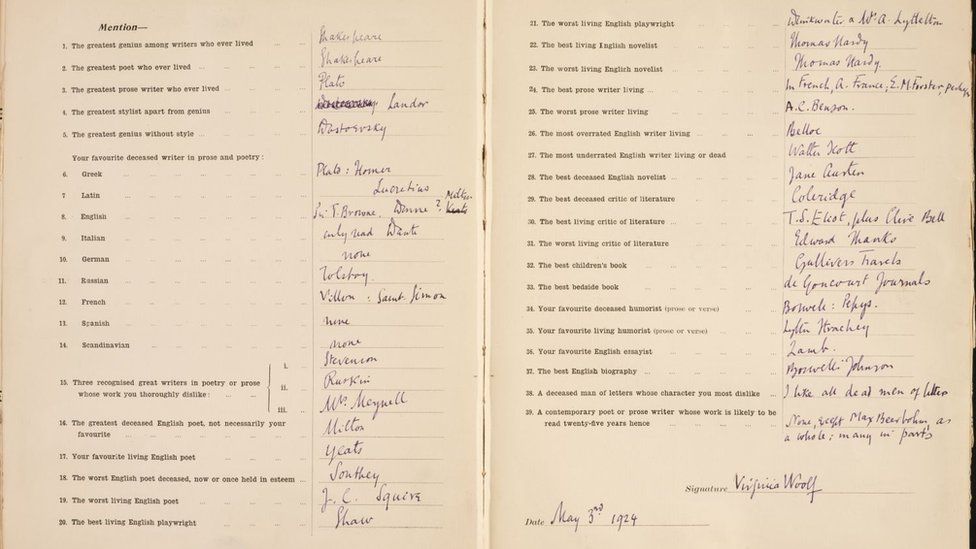 Mention—
1. The greatest genius among writers who ever lived ... ... Shakespeare
2. The greatest poet who ever lived ... Shakespeare
3. The greatest prose writer who ever lived ... Plato
4. The greatest stylist apart from genius ... Landor
5. The greatest genius without style ... Dostoevsky
Your favourite deceased writer in prose and poetry :
6. Greek ... Plato : Homer
7 Latin ... Lucretius
8. English ... Sir T. Browne. Donne ? Milton Keats
9. Italian ... only read Dante
10. German ... none
11. Russian ... Tolstoy.
12. French ... Villon : Saint. Simon
13. Spanish ... none
14. Scandinavian ... none
15. Three recognised great writers in poetry or prose
whose work you thoroughly dislike :
i. Stevenson
ii. Ruskin
iii. Mrs. Meynell
16. The greatest deceased English poet, not necessarily your
favourite ... Milton
17. Your favourite living English poet ... Yeats
18. The worst English poet deceased, now or once held in esteem ... Southey
19. The worst living English poet ... J. C. Squire
20. The best living English playwright ... Shaw
21. The worst living English playwright ... Drinkwater & Mr. A. Lyttelton
22. The best living English novelist ... Thomas Hardy
23. The worst living English novelist ... Thomas Hardy.
24. The best prose writer living ... In French, A. France; E. M. Forster, perhaps
25. The worst prose writer living ... A.C. Benson.
26. The most overrated English writer living ... Belloc
27. The most underrated English writer living or dead ... Walter Scott
28. The best deceased English novelist ... Jane Austen
29. The best deceased critic of literature ... Coleridge
30. The best living critic of literature ... T. S. Eliot, plus Clive Bell
31. The worst living critic of literature ... Edward Shanks
32. The best children's book ... Gullivers Travels
33. The best bedside book ... de Goncourt Journals
34. Your favourite deceased humorist (prose or verse) ... Boswell : Pepys.
35. Your favourite living humorist (prose or verse) ... Lytton Strachey
36. Your favourite English essayist ... Lamb.
37. The best English biography ... Boswells Johnson
38. A deceased man of letters whose character you most dislike ... I like all dead men of letters
39. A contemporary poet or prose writer whose work is likely to
be read twenty-five years hence ... None, except Max Beerbohm, as
a whole; many in parts
Signature Virginia Woolf
Date May 3rd 1924